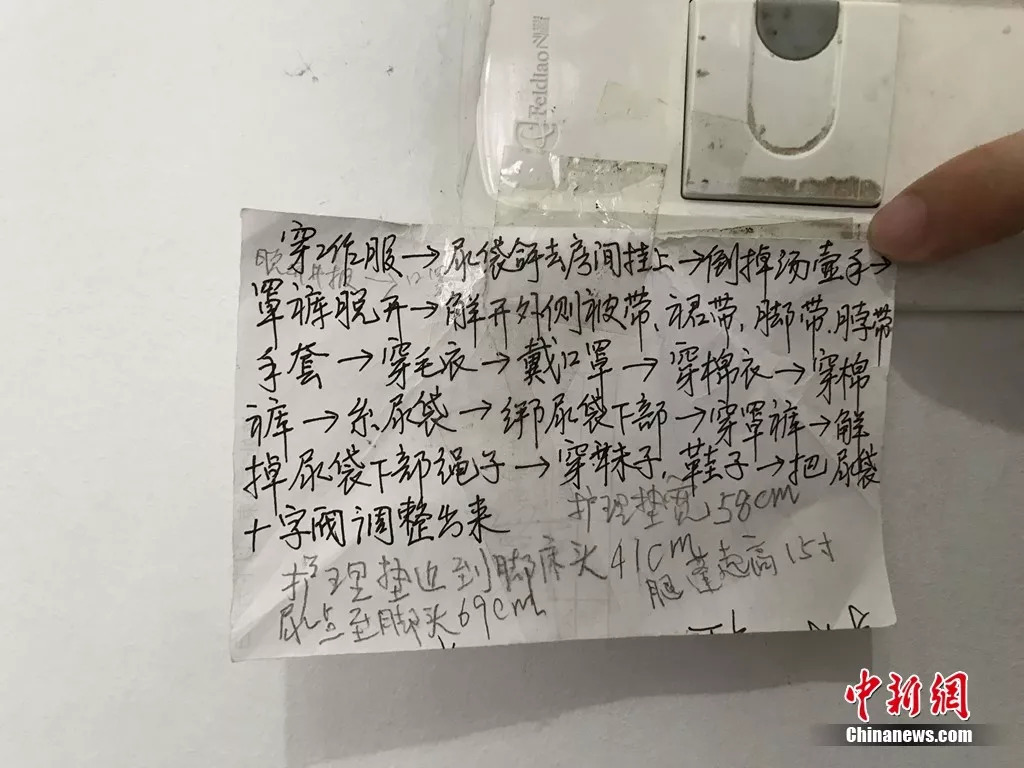 Feidiao
穿工作服→尿袋拿去房间挂上→倒掉汤壶手→
罩裤脱开→解开外侧被带、裙带、脚带、脖带
手套→穿毛衣→戴口罩→穿棉衣→穿棉
裤→系尿袋→绑尿袋下部→穿罩裤→解
掉尿袋下部绳子→穿袜子、鞋子→把尿袋
十字阀调整出来
护理垫宽58cm
护理垫边到脚床头41cm
腿 起高15寸
尿 至脚头69cm
中新网
Chinanews.com